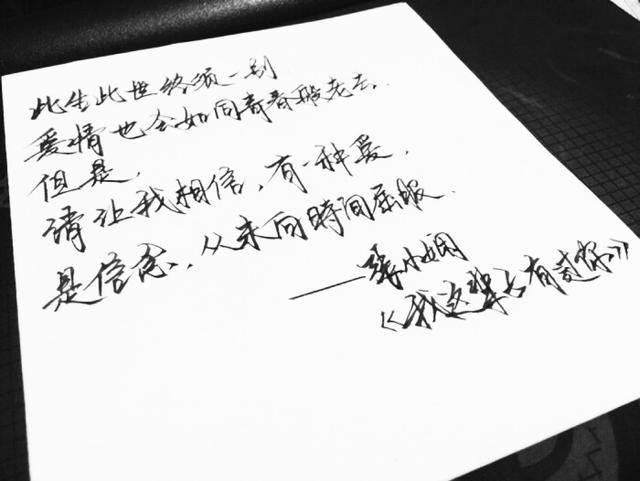 此生此世终须一别
爱情也会如同青春般老去.
但是,
请让我相信,有一种爱,
是信念,从未向時间屈服.
——张小娴
《我这辈子有过你》